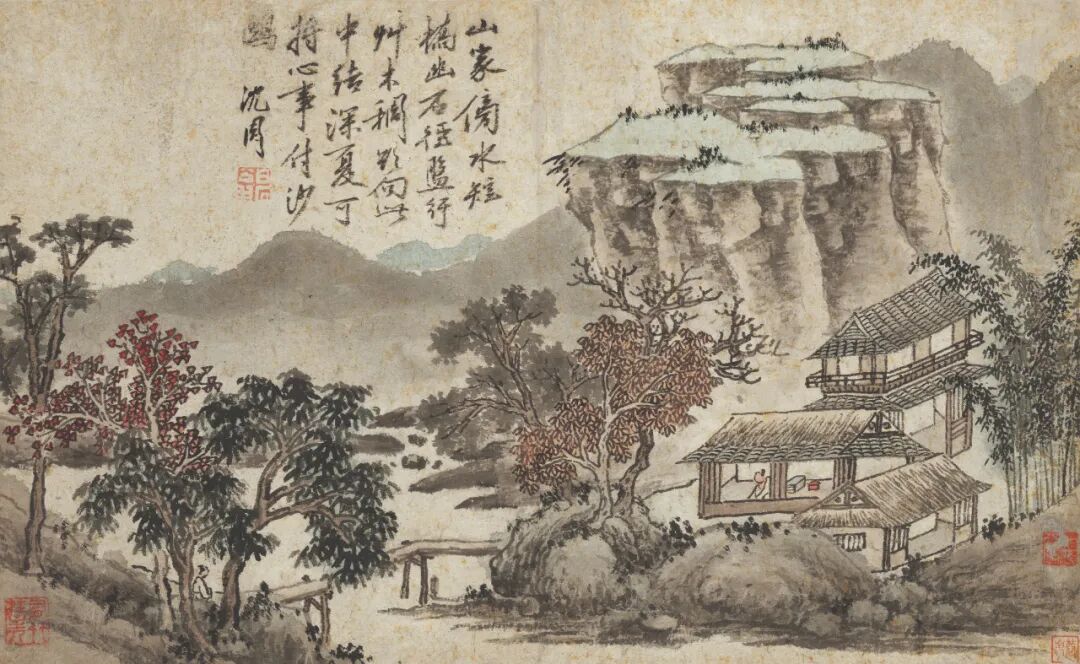 山家傍水短
橋幽石徑盤行
艸木稠欲向此
中結深夏可
持心事付沙
鷗 沈周